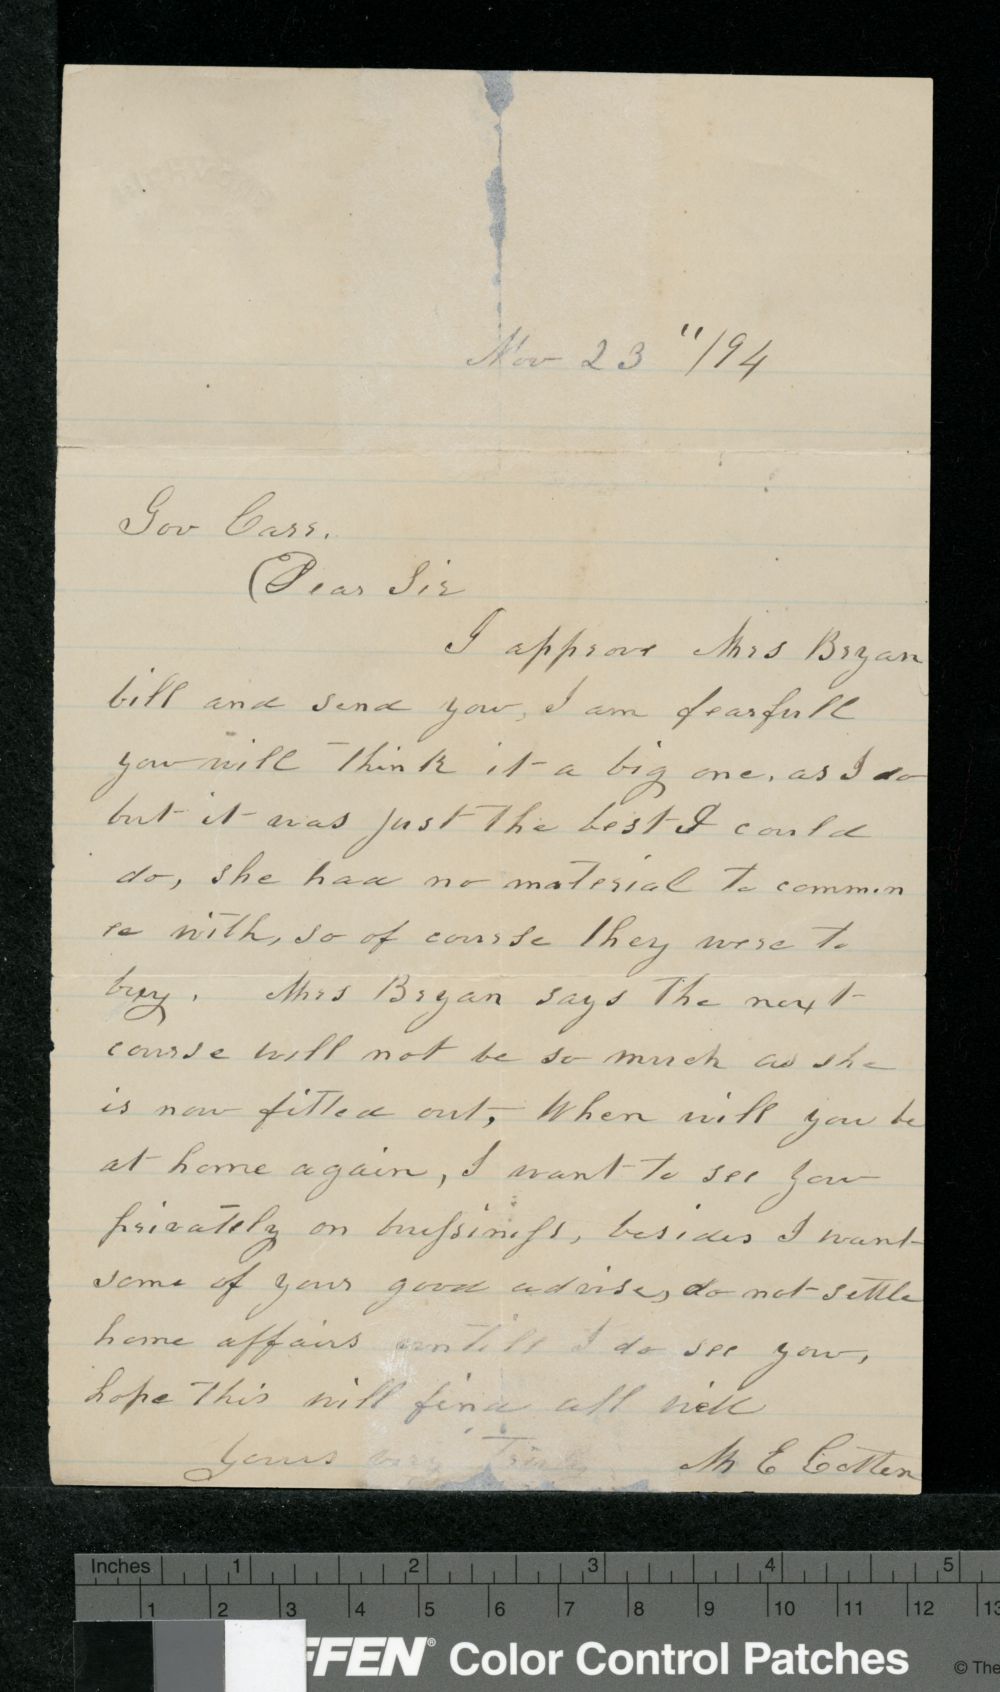 Nov 23 "/94
Gov Carr.
Dear Sir
I approve Mrs Bryan
bill and send you, I am fearfull
you will think it a big one, as I do
but it was just the best I could
do, she had no material to commen
ce with, so of course they were to
buy. Mrs Bryan says the next
course will not be so much as she
is now fitted out, When will you be
at home again, I want to see you
privately on bussiness, besides I want
some of your good advise, do not settle
home affairs untill I do see you,
hope this will find all well
Yours very truly M E Cotten
Inches 1 2 3 4 5
1 2 3 4 5 6 7 8 9 10 11 12 13
FFEN® Color Control Patches © The